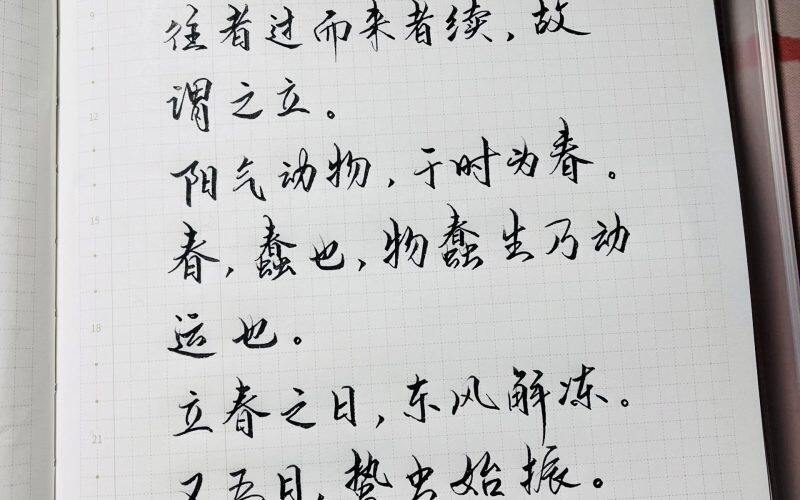 往者过而来者续，故
谓之立。
12
阳气动物，于时为春。
15
春，蠢也，物蠢生乃动
运也。
18
立春之日，东风解冻。
21
又五日，蛰虫始振。